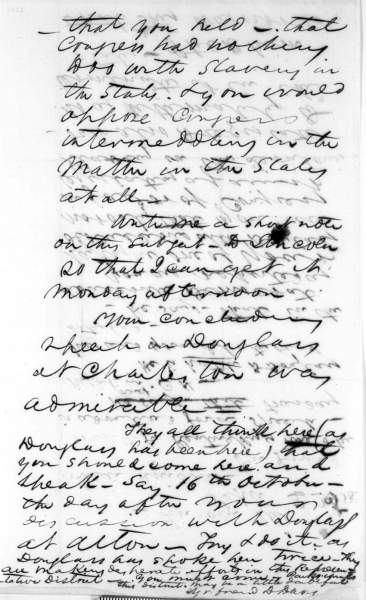 - that you held - that
Congress had nothing
to do with Slavery in
the States. & you would
oppose Congress
intermeddling in the
Matter in the States
at all -
Write me a short note
on this subject - Dr Lincoln
so that I can get it
Monday afternoon
Your concluding
Speech in Douglass
at Charleston was
admirable =
They all think here (as
Douglass has been here) that
you should come here and
speak - Say 16th October -
the day after your
discussion with Douglass
at Alton - Try & do it. as
Douglass has spoke here twice. They
are making desperate efforts in this Represen-
tative District - You must come
this District
Yr friend D Davis